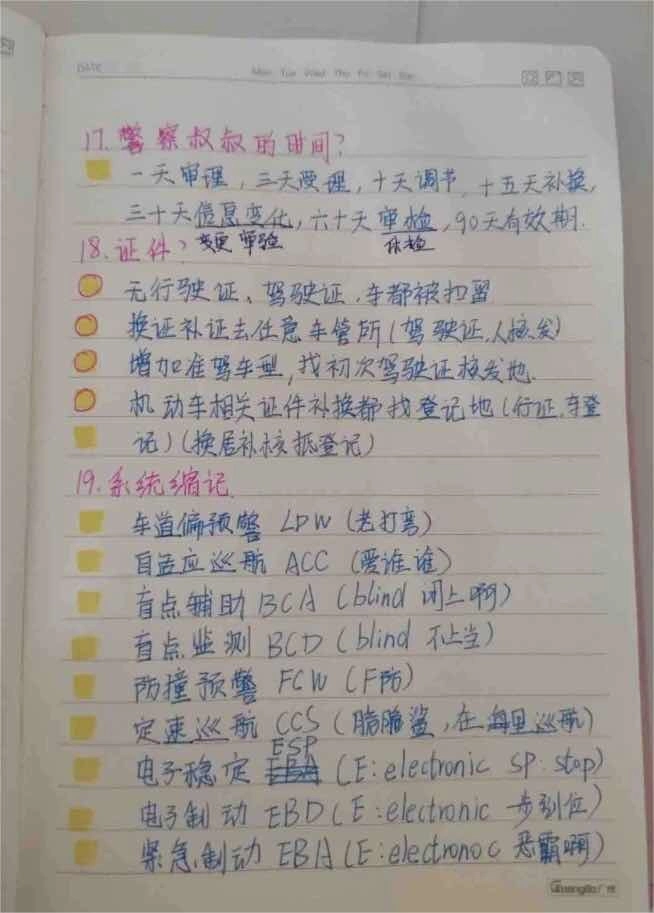 DATE
Mon Tue Wed Thu Fri Sat Sun
17. 警察叔叔的时间?
一天审理, 三天受理, 十天调节, 十五天补换,
三十天信息变化, 六十天审检, 90天有效期.
变更 审验 体检
18. 证件?
无行驶证、驾驶证, 车都被扣留
换证补证去任意车管所(驾驶证,人核发)
增加准驾车型, 找初次驾驶证核发地.
机动车相关证件补换都找登记地(行证,车登
记)(换居补核抵登记)
19. 系统缩记
车道偏预警 LDW (老打弯)
自适应巡航 ACC (爱谁谁)
盲点辅助 BCA (blind 闭上啊)
盲点监测 BCD (blind 不上当)
防撞预警 FCW (F防)
定速巡航 CCS (脂脂鲨,在海里巡航)
ESP
电子稳定 EBA (E: electronic SP: stop)
电子制动 EBD (E: electronic 一步到位)
紧急制动 EBA (E: electronoc 恶霸啊)
GuangBo 广博